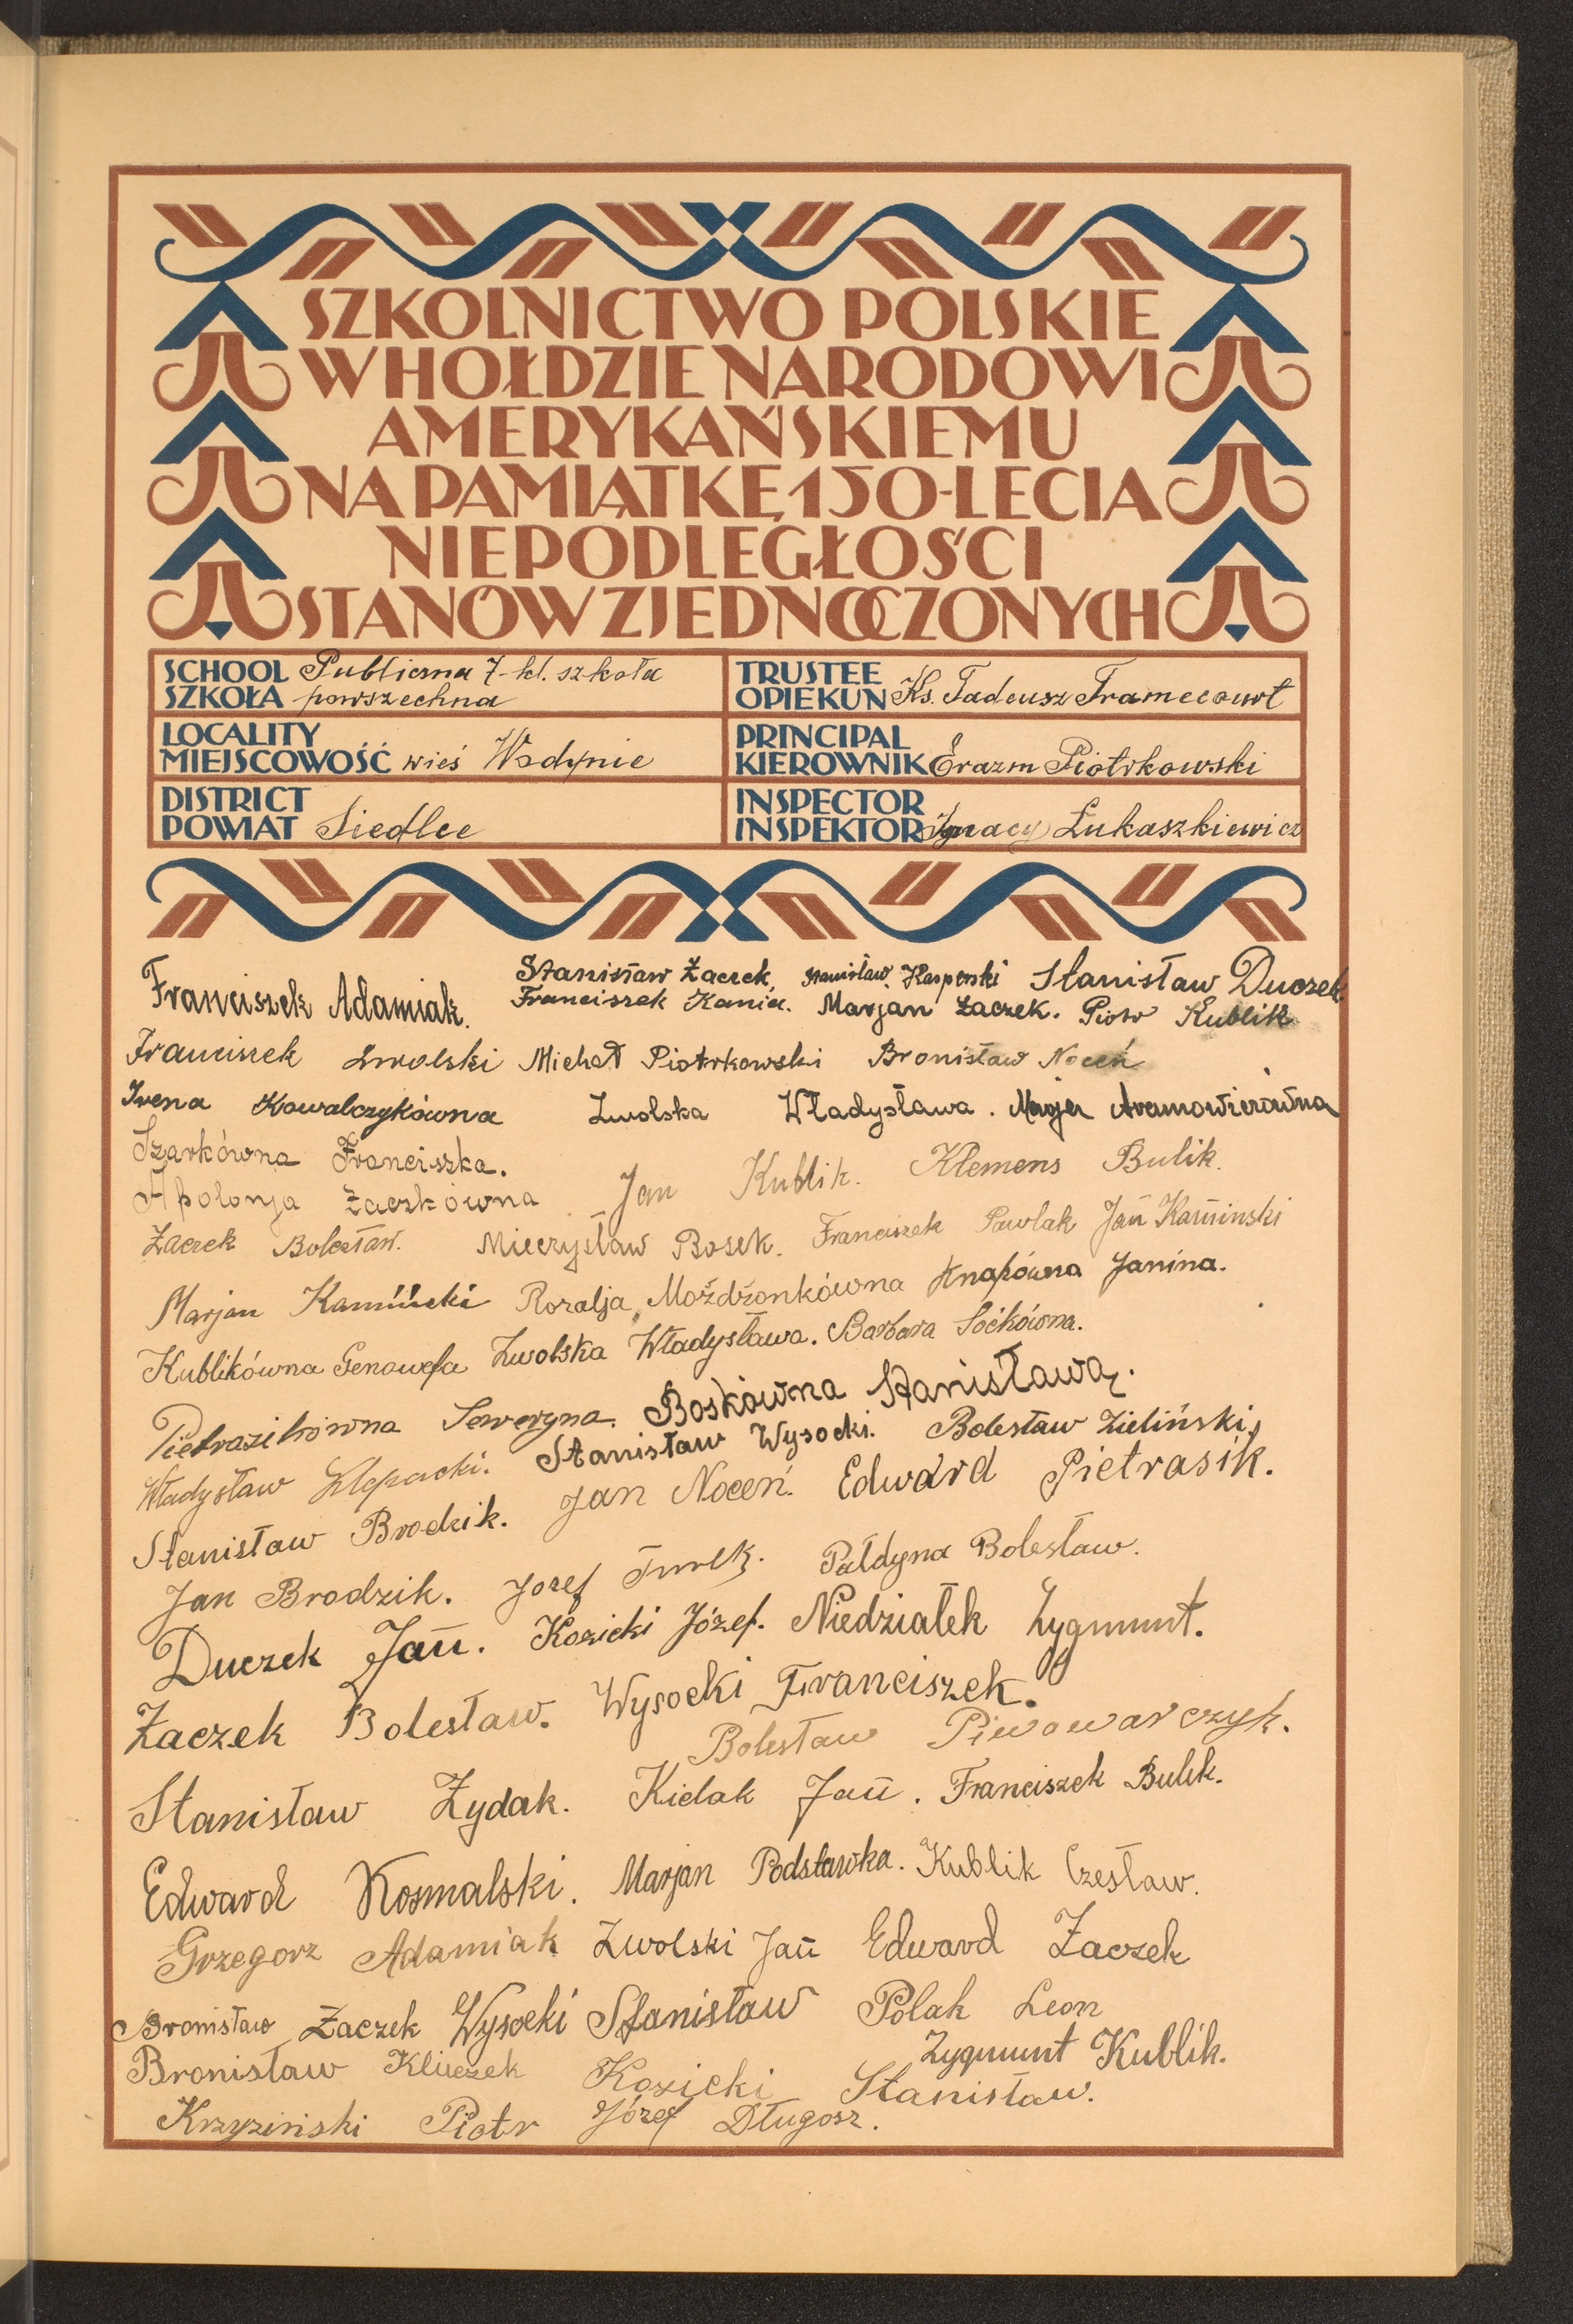 SZKOLNICTWO POLSKIE
W HOŁDZIE NARODOWI
AMERYKAŃSKIEMU
NA PAMIĄTKĘ 150-LECIA
NIEPODLEGŁOŚCI
STANÓW ZJEDNOCZONYCH
SCHOOL
SZKOŁA
Publiczna 7-kl. szkoła
powszechna
TRUSTEE
OPIEKUN
Ks. Tadeusz Tramecourt
LOCALITY
MIEJSCOWOŚĆ
wieś Wodynie
PRINCIPAL
KIEROWNIK
Erazm Piotrkowski
DISTRICT
POWIAT
Siedlce
INSPECTOR
INSPEKTOR
Ignacy Łukaszkiewicz
Franciszek Adamiak.
Stanisław Żaczek, Stanisław Kasperski Stanisław Duczek
Franciszek Kania. Marjan Żaczek. Piotr Kublik
Franciszek Zwolski Michał Piotrkowski Bronisław Noceń
Irena Kowalczykówna Zwolska Władysława. Marja
Szarkówna Franciszka.
Apolonja Żaczkówna Jan Kublik. Klemens Bulik.
Żaczek Bolesław. Mieczysław Bosek. Franciszek Pawlak Jan Kamiński
Marjan Kamiński Rozalja Możdżonkówna Knapówna Janina.
Kublikówna Genowefa Zwolska Władysława. Barbara Soćkówna.
Pietrasikówna Seweryna. Boskówna Stanisława.
Władysław Klepacki. Stanisław Wysocki. Bolesław Zieliński,
Stanisław Brodzik. Jan Noceń. Edward Pietrasik.
Jan Brodzik. Jozef Turek. Pałdyna Bolesław.
Duczek Jan. Kozicki Józef. Niedziałek Zygmunt.
Żaczek Bolesław. Wysocki Franciszek.
Bolesław Piwowarczyk.
Stanisław Zydak. Kielak Jan. Franciszek Bulik.
Edward Kosmalski. Marjan Podstawka. Kublik Czesław.
Grzegorz Adamiak Zwolski Jan Edward Żaczek
Bronisław Żaczek Wysocki Stanisław Polak Leon
Zygmunt Kublik.
Bronisław Kluczek Kozicki Stanisław.
Krzyziński Piotr Józef Długosz.